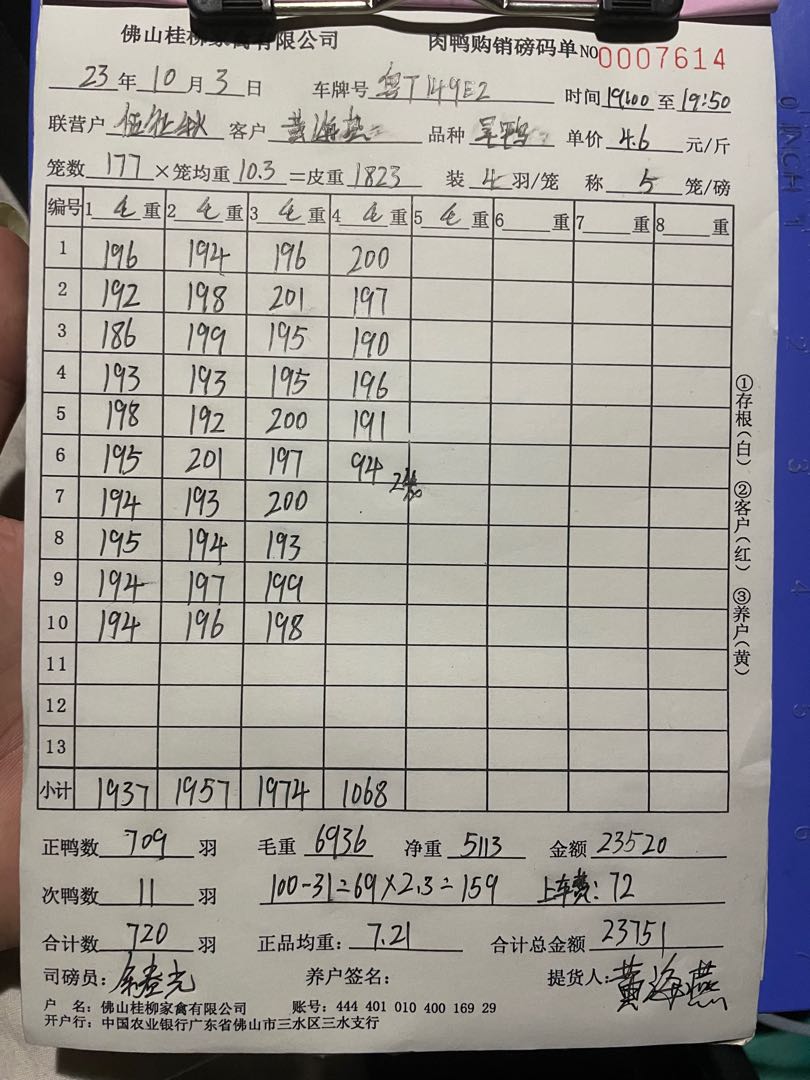 佛山桂柳家禽有限公司 肉鸭购销磅码单 NO0007614
23年10月3日 车牌号 粤T149E2 时间19:00至19:50
联营户 客户 黄海燕 品种 单价 4.6 元/斤
笼数 177 ×笼均重 10.3 =皮重 1823 装 4 羽/笼 称 5 笼/磅
编号 1 毛 重 2 毛 重 3 毛 重 4 毛 重 5 毛 重 6 重 7 重 8 重
1 196 194 196 200
2 192 198 201 197
3 186 199 195 190
4 193 193 195 196
5 198 192 200 191
6 195 201 197 94 2笼
7 194 193 200
8 195 194 193
9 194 197 199
10 194 196 198
11
12
13
小计 1937 1957 1974 1068
正鸭数 709 羽 毛重 6936 净重 5113 金额 23520
次鸭数 11 羽 100-31=69×2.3=159 上车费:72
合计数 720 羽 正品均重: 7.21 合计总金额 23751
司磅员: 养户签名: 提货人: 黄海燕
户 名: 佛山桂柳家禽有限公司 账号: 444 401 010 400 169 29
开户行: 中国农业银行广东省佛山市三水区三水支行
①存根(白) ②客户(红) ③养户(黄)
0 INCH 1 2 3 4 5 6 7